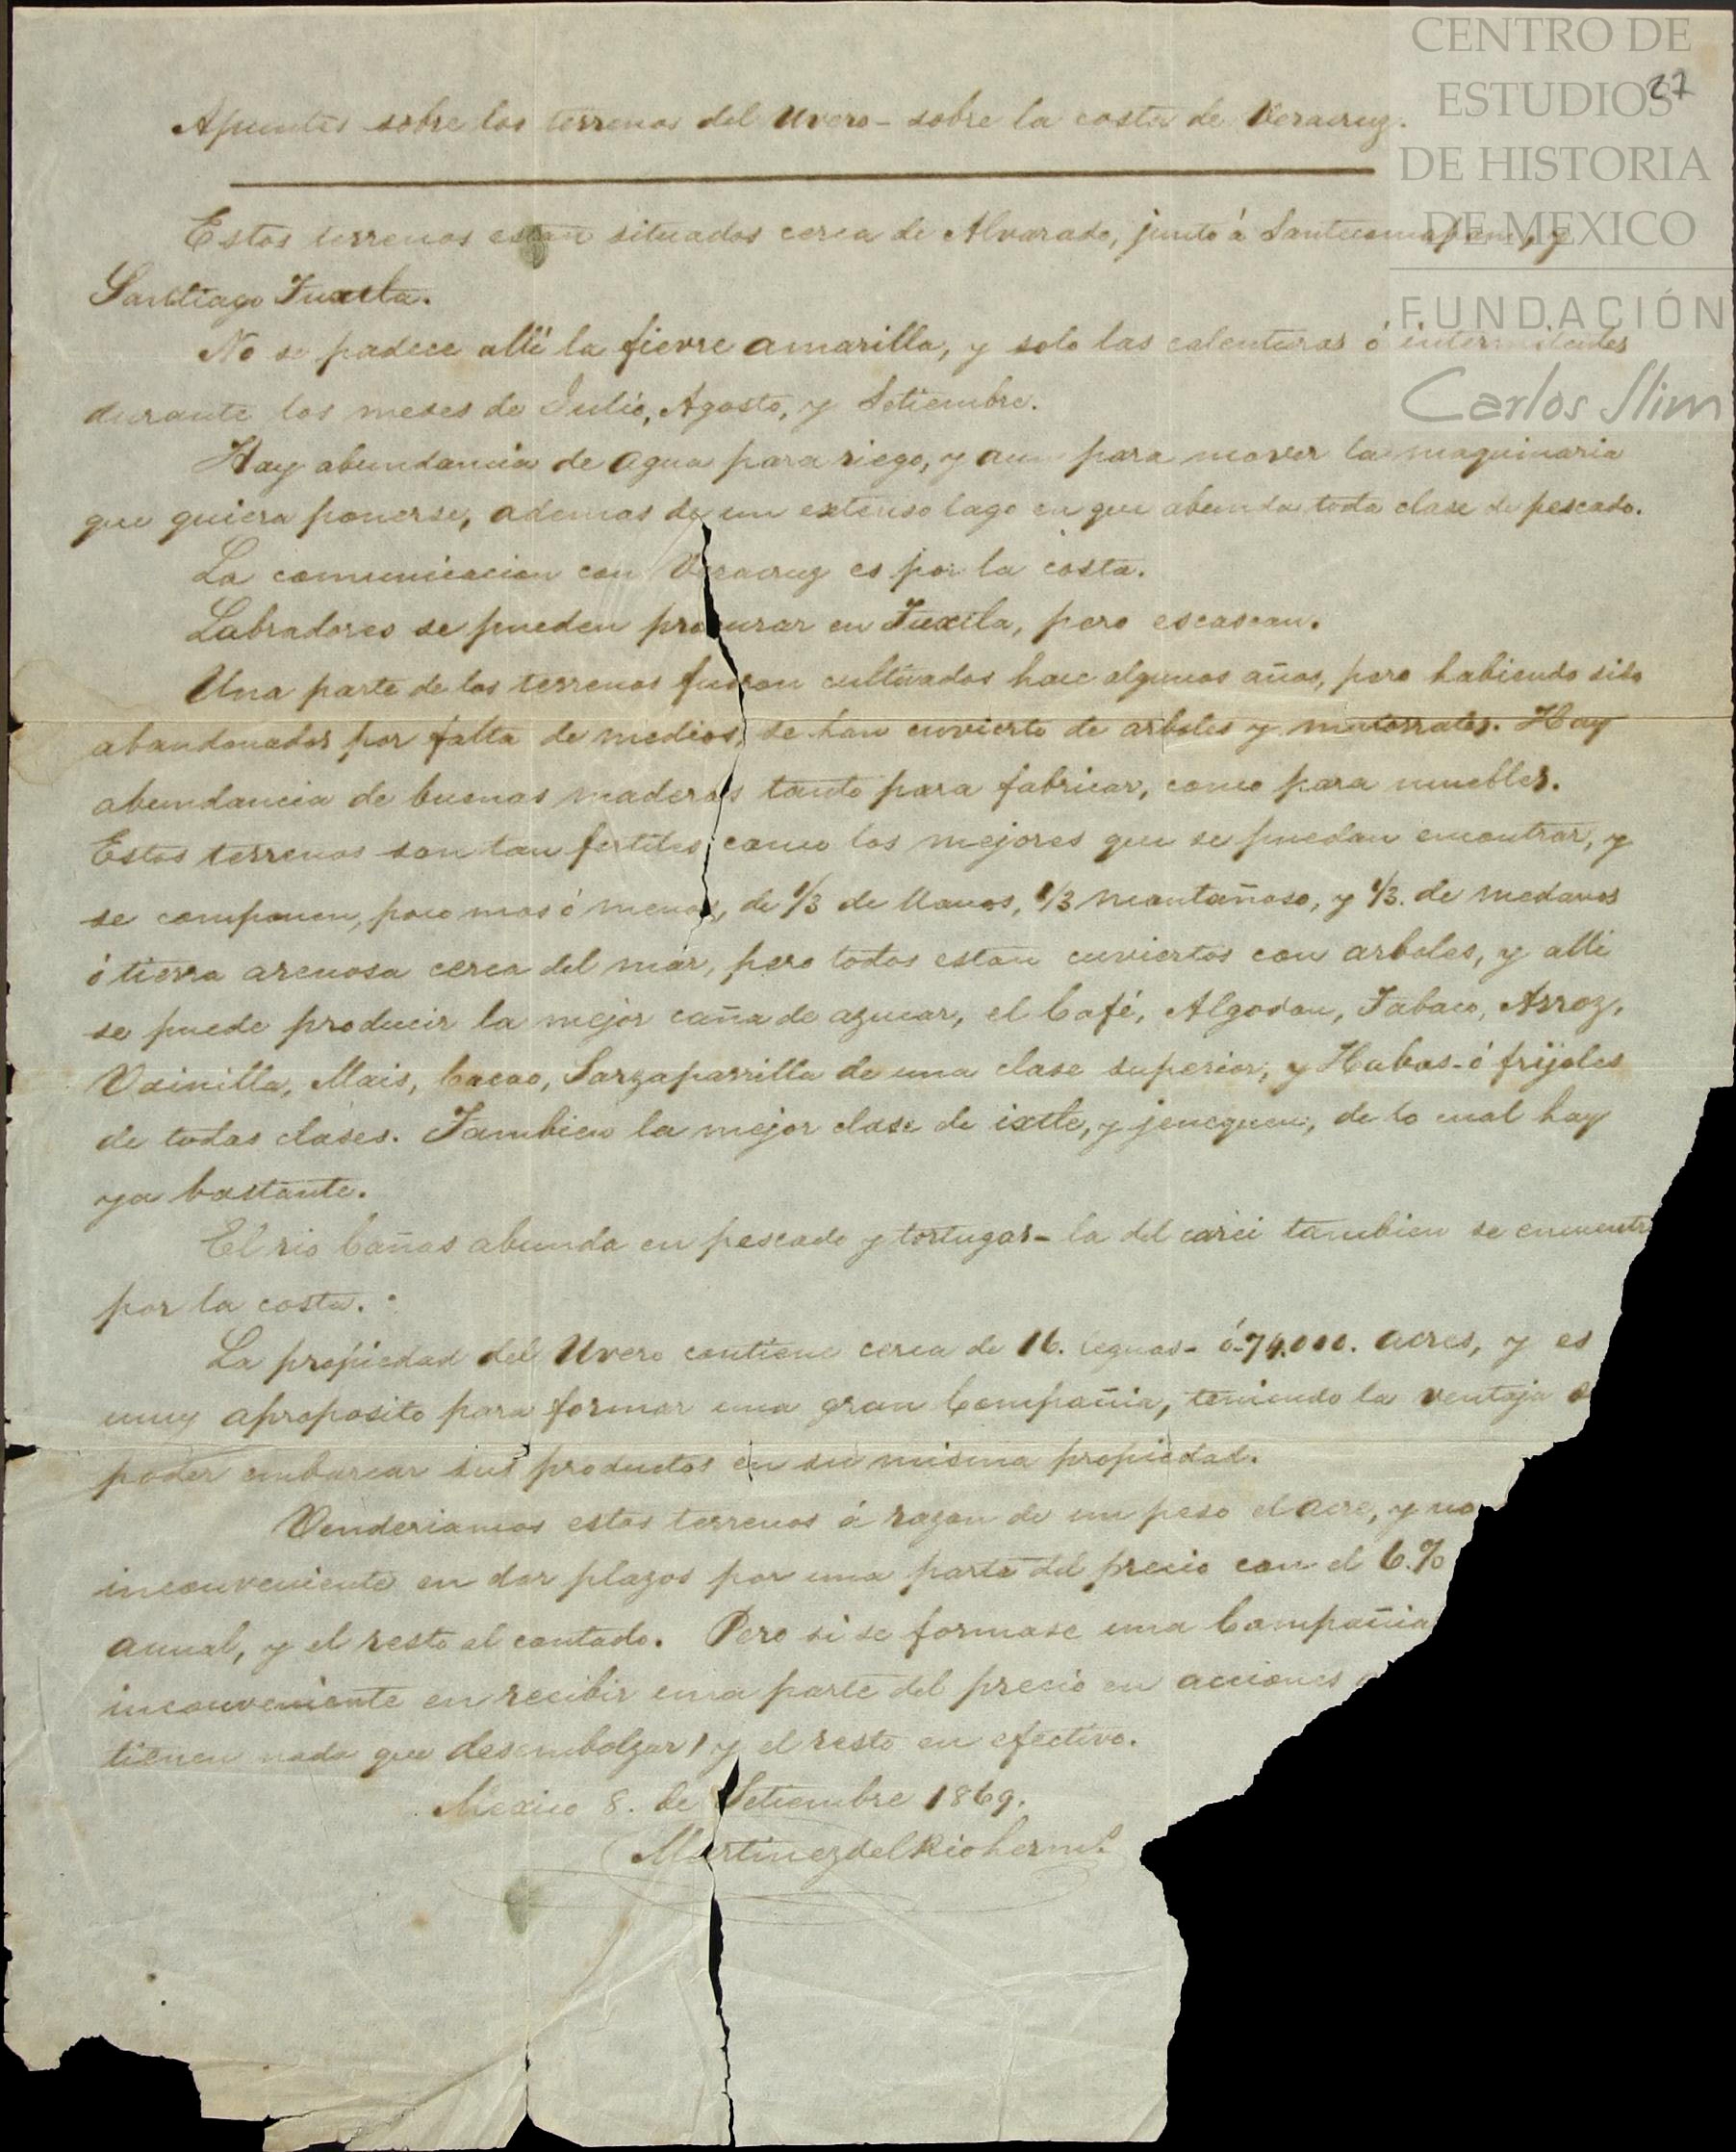 CENTRO DE
ESTUDIOS
DE HISTORIA
DE MEXICO
FUNDACIÓN
Carlos Slim
27
Apuntes sobre los terrenos del Uvero - sobre la costa de Veracruz.
Estos terrenos estan situados cerca de Alvarado, junto á Santecomapam, y
Santiago Tuxtla.
No se padece allí la fievre amarilla, y solo las calenturas ó intermitentes
durante los meses de Julio, Agosto, y Setiembre.
Hay abundancia de agua para riego, y aun para mover la maquinaria
que quiera ponerse, ademas de un extenso lago en que abunda toda clase de pescado.
La comunicacion con Veracruz es por la costa.
Labradores se pueden procurar en Tuxtla, pero escasean.
Una parte de los terrenos fueron cultivados hace algunos años, pero habiendo sido
abandonados por falta de medios, se han cuvierto de arboles y matorrales. Hay
abundancia de buenas maderas tanto para fabricar, como para muebles.
Estos terrenos son tan fertiles como los mejores que se puedan encontrar, y
se componen, poco mas ó menos, de 1/3 de llanos, 1/3 montañoso, y 1/3. de medanos
ó tierra arenosa cerca del mar, pero todos estan cuviertos con arboles, y alli
se puede producir la mejor caña de azucar, el Café, Algodon, Tabaco, Arroz,
Vainilla, Mais, Cacao, Sarzaparrilla de una clase superior, y Habas - ó frijoles
de todas clases. Tambien la mejor clase de ixtle, y jenequen, de lo cual hay
ya bastante.
El rio Cañas abunda en pescado y tortugas - la del carei tambien se encuentr
por la costa.
La propiedad del Uvero contiene cerca de 16. leguas - ó - 74.000. acres, y es
muy aproposito para formar una gran Compañia, teniendo la ventaja d
poder embarcar sus productos en su misma propiedad.
Venderiamos estos terrenos á razon de un peso el acre, y no
inconveniente en dar plazos por una parte del precio con el 6.%
anual, y el resto al contado. Pero si se formase una Compañia
inconveniente en recibir una parte del precio en acciones
tienen nada que desembolzar) y el resto en efectivo.
Mexico 8. de Setiembre 1869.
Martinez del Rio herms.